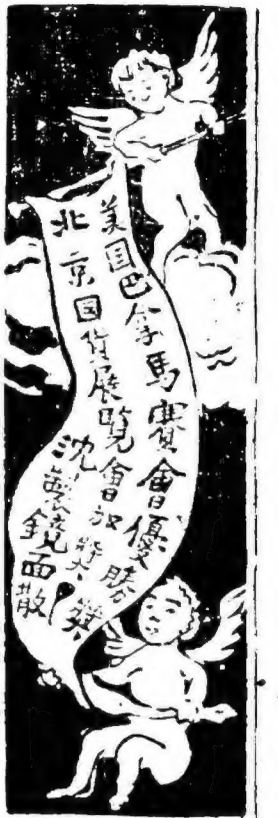 美国巴拿马賽會優勝獎
北京国货展覽會加獎
沈製鏡面散